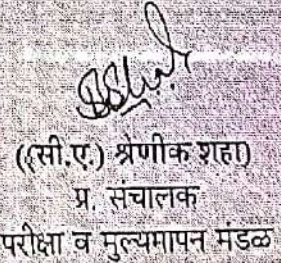 ((सी.ए.) श्रेणीक शहा)
प्र. संचालक
परीक्षा व मुल्यमापन मंडळ